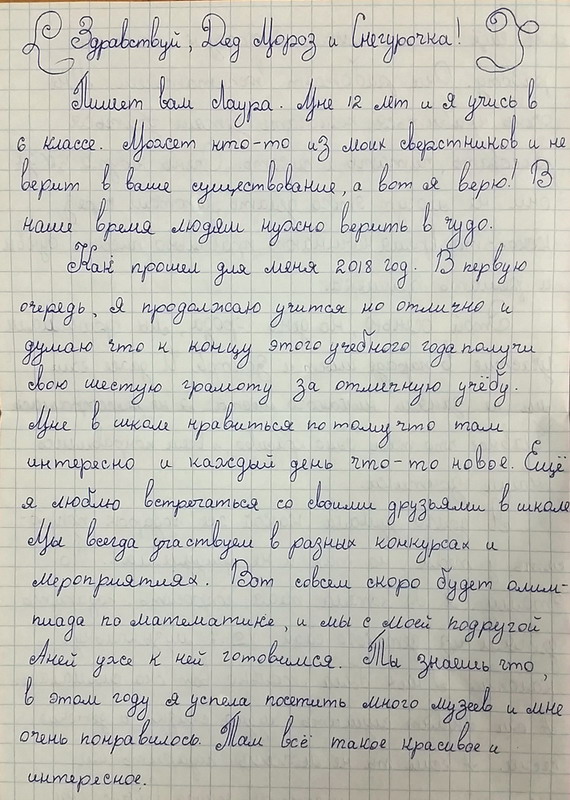 Здравствуй, Дед Мороз и Снегурочка!
Пишет вам Лаура. Мне 12 лет и я учусь в
6 классе. Может кто-то из моих сверстников и не
верит в ваше существование, а вот я верю! В
наше время людям нужно верить в чудо.
Как прошел для меня 2018 год. В первую
очередь, я продолжаю учится на отлично и
думаю что к концу этого учебного года получу
свою шестую грамоту за отличную учёбу.
Мне в школе нравиться потому что там
интересно и каждый день что-то новое. Ещё
я люблю встречаться со своими друзьями в школе
Мы всегда участвуем в разных конкурсах и
мероприятиях. Вот совсем скоро будет олим-
пиада по математике, и мы с моей подругой
Аней уже к ней готовимся. Ты знаешь что,
в этом году я успела посетить много музеев и мне
очень понравилось. Там всё такое красивое и
интересное.